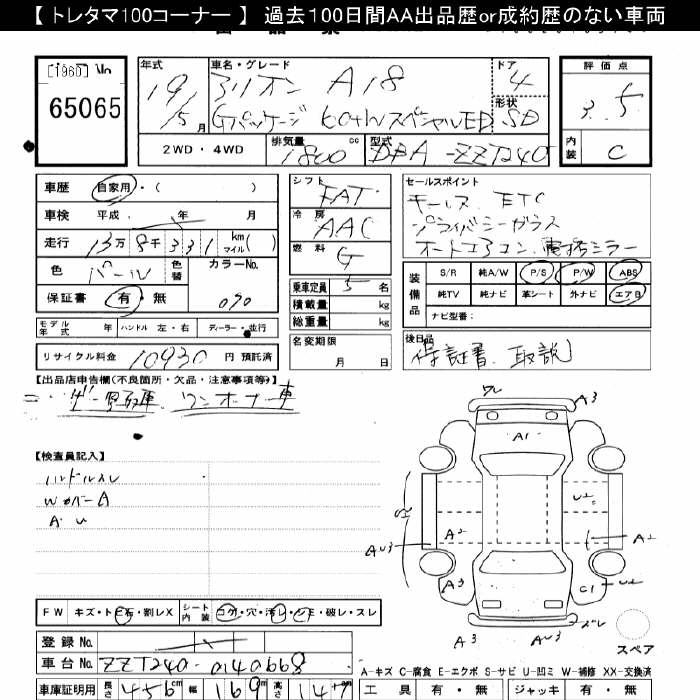 【 トレタマ100コーナー 】 過去100日間AA出品歴or成約歴のない車両
[1960] No
65065
年式 車名・グレード ドア
19/5月 アリオン A18 4
Gパッケージ 60thスペシャルED 形状 SD
評価点
3.5
内装 C
2WD・4WD 排気量 1800cc 型式 DBA-ZZT240
車歴 自家用・( )
車検 平成 年 月
走行 13万8千331 km マイル( )
色 パール 色替 カラーNo. 070
保証書 有・無
シフト FAT
冷房 AAC
燃料 G
乗車定員 5名
積載量 kg
総重量 kg
セールスポイント
キーレス ETC
プライバシーガラス
オートエアコン 電格ミラー
装備品 S/R 純A/W P/S P/W ABS
純TV 純ナビ 革シート 外ナビ エアB
ナビ型番:
モデル年式 年 ハンドル 左・右 ディーラー・並行
名変期限 月 日
後日品
保証書、取説
リサイクル料金 10930 円 預託済
【出品店申告欄(不良箇所・欠品・注意事項等)】
ワンオーナー車
【検査員記入】
ハンドルスレ
WカバーA
A・U
FW キズ・トビ石・割レX シート内装 コゲ・穴・汚レ・シミ・破レ・スレ
登録 No.
車台 No. ZZT240-0140668
車庫証明用 長さ 456cm 幅 169cm 高さ 147cm
A3
A1
U2
A2
AU3
A2
A3
C1
U2
A3
AU3
スペア
A-キズ C-腐食 E-エクボ S-サビ U-凹ミ W-補修 XX-交換済
工具 有・無 ジャッキ 有・無